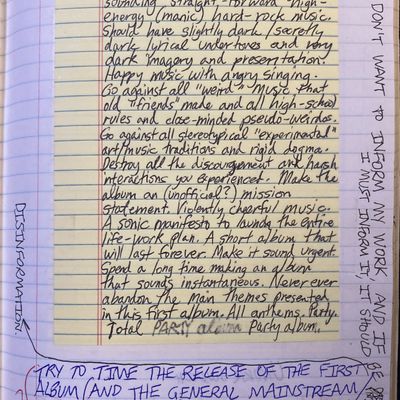 sounding straight-forward high-
energy (manic) hard-rock music.
Should have slightly dark/secretly
dark lyrical undertones and very
dark imagery and presentation.
Happy music with angry singing.
Go against all "weird" music that
old "friends" made and all high-school
rules and close-minded pseudo-weirdos.
Go against all stereotypical "experimental"
art/music traditions and rigid dogma.
Destroy all the discouragement and harsh
interactions you experienced. Make the
album an (unofficial?) mission
statement. Violently cheerful music.
A sonic manifesto to launch the entire
life-work plan. A short album that
will last forever. Make it sound urgent.
Spend a long time making an album
that sounds instantaneous. Never ever
abandon the main themes presented
in this first album. All anthems. Party.
Total PARTY album Party album.
DON'T WANT TO INFORM MY WORK AND IF
I MUST INFORM IT IT SHOULD BE
DISINFORMATION.
TRY TO TIME THE RELEASE OF THE FIRST
ALBUM (AND THE GENERAL MAINSTREAM